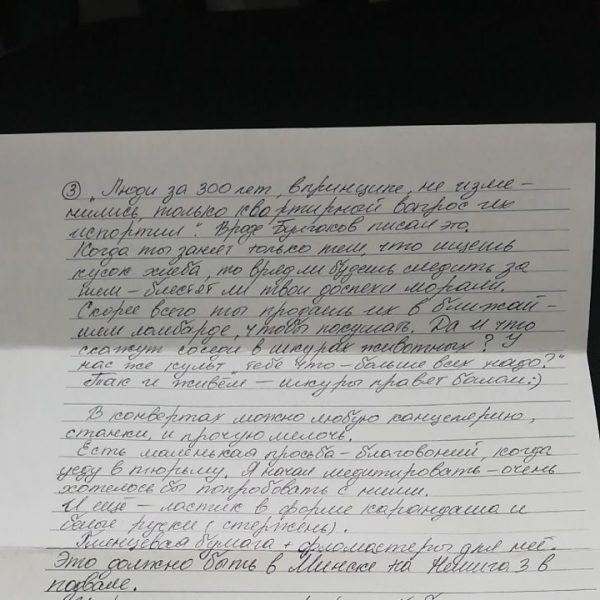 ③ „Люди за 300 лет, впринципе, не изме-
нились, только квартирной вопрос их
испортил". Вроде Булгаков писал это.
Когда ты занят только тем, что ищешь
кусок хлеба, то врядли будешь следить за
тем - блестят ли твои доспехи морали.
Скорее всего ты продашь их в ближай-
шем ломбарде, чтобы покушать. Да и что
скажут соседи в шкурах животных? У
нас же культ „тебе что - больше всех надо?"
Так и живём - шкуры правят балом :)
В конвертах можно любую канцелярию,
станки, и прочую мелочь.
Есть маленькая просьба - благовоний, когда
уеду в тюрьму. Я начал медитировать - очень
хотелось бы попробовать с ними.
И ещё - ластик в форме карандаша и
белые ручки (стержень).
Глянцевая бумага + фломастеры для неё.
Это должно быть в Минске на Немига 3 в
подвале.